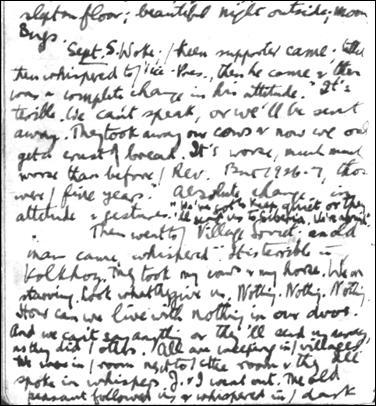 slept on floor; beautiful night outside; moon
Bugs.
Sept. 5. Woke. / Keen supporter came. talked
then whispered to / Vice-Pres., then he came & there
was a complete change in his attitude. "It's
terible. We can't speak, or we'll be sent
away. They took away our cows & now we only
get a crust of bread. It's worse, much much
worse than before / Rev. But 1926-7, those
were / fine years." Absolute change in
attitude & gestures. "He's got to keep quiet or they
'll send us to Siberia.
Then went to / Village Soviet. an old
man came, whispered "It is terrible in
Kolkhoz. They took my cows & my horse. We are
starving. Look what they give us. Nothing. Nothing. Nothing.
How can we live with nothing in our dvor.
And we can't say anything or they'll send us away,
as they did / others. All are weeping in / villages
We were in / room next to / the room & they all
spoke in whispers. J. & I went out. The old
peasant followed us & whispered in / dark